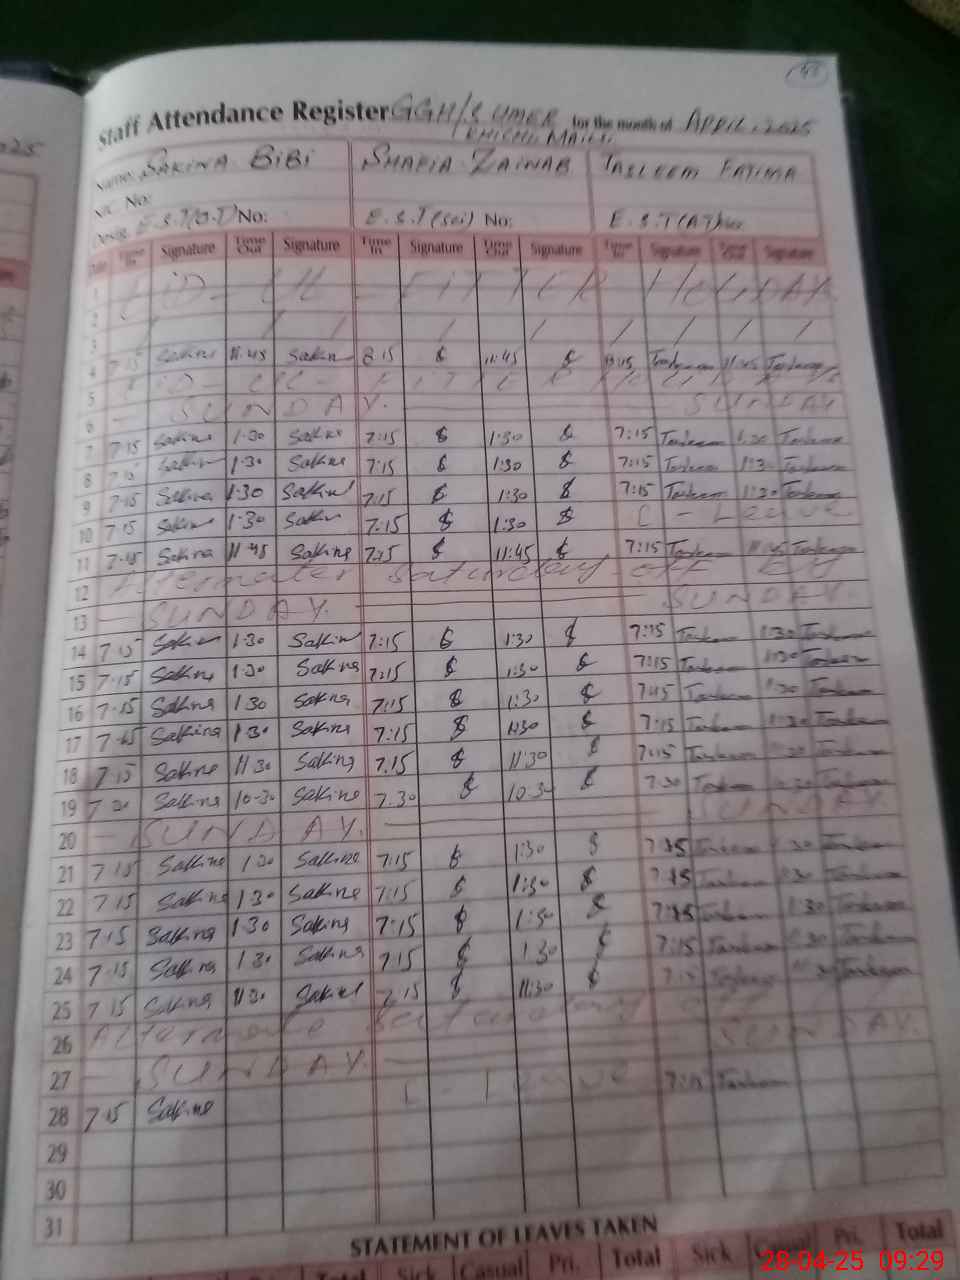 Staff Attendance Register GGH/S UMER for the month of APRIL, 2025
KHICHI MAILSI
Name: SAKINA BIBI SHAFIA ZAINAB TASLEEM FATIMA
N.I.C. No:
Desig. E.S.T(O.T) No: E.S.T(Sci) No: E.S.T(AT)
Date Time In Signature Time Out Signature Time In Signature Time Out Signature Time In Signature Time Out Signature
1 EID-UL-FITTER HOLIDAY
2
3 / / / / / / / /
4 7:15 Sakina 11:45 Sakina 8:15 11:45 Tasleem 11:45 Tasleem
5 EID-UL-FITTER
6 SUNDAY. SUNDAY
7 7:15 Sakina 1:30 Sakina 7:15 1:30 7:15 Tasleem 1:30 Tasleem
8 7:15 Sakina 1:30 Sakina 7:15 1:30 7:15 Tasleem 1:30 Tasleem
9 7:15 Sakina 1:30 Sakina 7:15 1:30 7:15 Tasleem 1:30 Tasleem
10 7:15 Sakina 1:30 Sakina 7:15 1:30 C-Leave
11 7:15 Sakina 11:45 Sakina 7:15 11:45 7:15 Tasleem 11:45 Tasleem
12 Alternate Saturday off
13 SUNDAY. SUNDAY.
14 7:15 Sakina 1:30 Sakina 7:15 1:30 7:15 Tasleem 1:30 Tasleem
15 7:15 Sakina 1:30 Sakina 7:15 1:30 7:15 Tasleem 1:30 Tasleem
16 7:15 Sakina 1:30 Sakina 7:15 1:30 7:15 Tasleem 1:30 Tasleem
17 7:15 Sakina 1:30 Sakina 7:15 1:30 7:15 Tasleem 1:30 Tasleem
18 7:15 Sakina 11:30 Sakina 7:15 11:30 7:15 Tasleem 11:30 Tasleem
19 7:30 Sakina 10:30 Sakina 7:30 10:30 7:30 Tasleem 10:30 Tasleem
20 SUNDAY. SUNDAY
21 7:15 Sakina 1:30 Sakina 7:15 1:30 7:15 Tasleem 1:30 Tasleem
22 7:15 Sakina 1:30 Sakina 7:15 1:30 7:15 Tasleem 1:30 Tasleem
23 7:15 Sakina 1:30 Sakina 7:15 1:30 7:15 Tasleem 1:30 Tasleem
24 7:15 Sakina 1:30 Sakina 7:15 1:30 7:15 Tasleem 1:30 Tasleem
25 7:15 Sakina 11:30 Sakina 7:15 11:30 7:15 Tasleem 11:30 Tasleem
26 Alternate Saturday off
27 SUNDAY. SUNDAY.
28 7:15 Sakina C-Leave 7:15 Tasleem
29
30
31
STATEMENT OF LEAVES TAKEN
Total Sick Casual Pri. Total Sick Casual Pri. Total
28-04-25 09:29